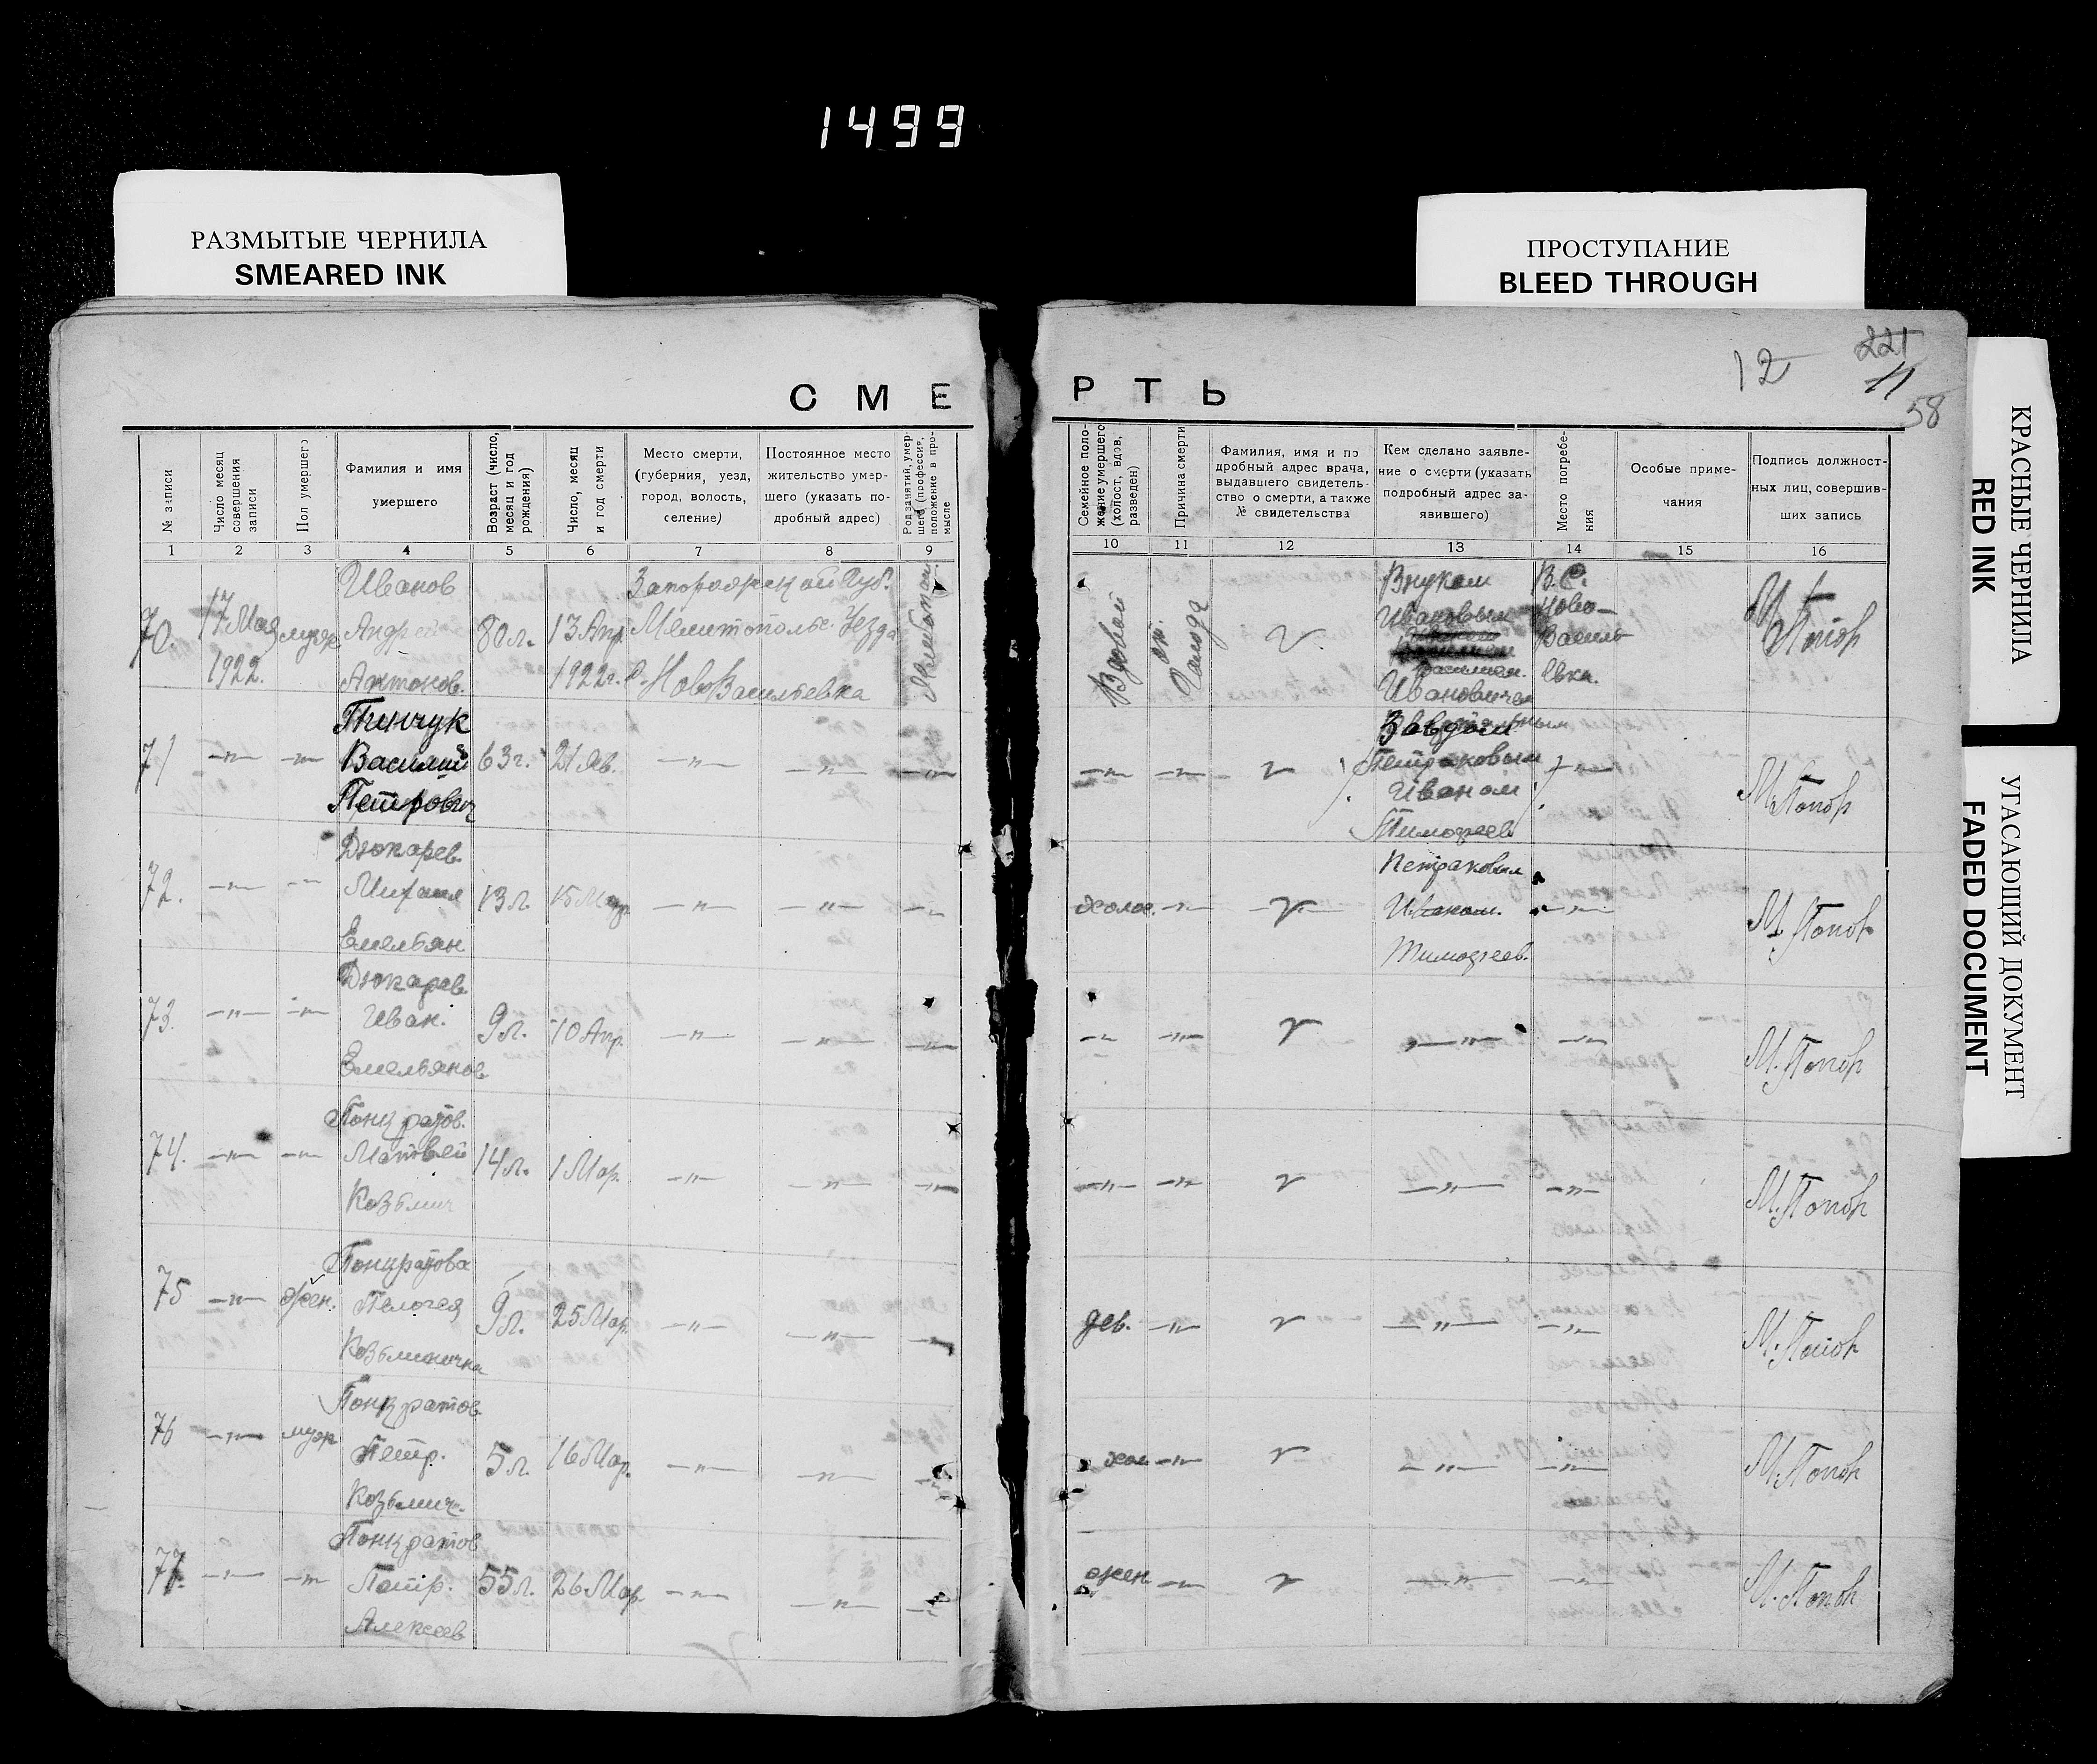 1499
РАЗМЫТЫЕ ЧЕРНИЛА
SMEARED INK
ПРОСТУПАНИЕ
BLEED THROUGH
КРАСНЫЕ ЧЕРНИЛА
RED INK
УГАСАЮЩИЙ ДОКУМЕНТ
FADED DOCUMENT
12
221
11
58
СМЕРТЬ
№ записи
Число месяц
совершения
записи
Пол умершего
Фамилия и имя
умершего
Возраст (число,
месяц и год
рождения)
Число, месяц
и год смерти
Место смерти,
(губерния, уезд,
город, волость,
селение)
Постоянное место
жительство умер-
шего (указать по-
дробный адрес)
Род занятий, умер-
шего (профессия,
положение в про-
мысле
Семейное поло-
жение умершего
(холост, вдов,
разведен)
Причина смерти
Фамилия, имя и по
дробный адрес врача,
выдавшего свидетель-
ство о смерти, а также
№ свидетельства
Кем сделано заявле-
ние о смерти (указать
подробный адрес за-
явившего)
Место погребе-
ния
Особые приме-
чания
Подпись должност-
ных лиц, совершив-
ших запись
1 2 3 4 5 6 7 8 9 10 11 12 13 14 15 16
70.
17 Мая
1922.
муж
Иванов
Андрей
Антонов.
80 л.
13 Апр.
1922 г.
Запорожской Губ.
Мелитопольс. Уезда
с. НовоВасильевка
Вдовой
от
Голода
Внуком
Ивановым
Ивановичем
В.С.
Ново-
Василь-
евка.
М. Попов
71
—"—
—"—
Пинчук
Василий
Петрович
63 г.
21 Ян.
—"—
—"—
—"—
—"—
—"—
Петраковым
Иваном
Тимофеев.
—"—
М. Попов
72.
—"—
—"—
Дюкарев.
Михаил
Емельян
13 л.
15 Мар
—"—
—"—
—"—
холос.
—"—
Петраковым
Иваном.
Тимофеев.
—"—
М. Попов
73.
—"—
—"—
Дюкарев
Иван.
Емельянов
9 л.
10 Апр.
—"—
—"—
—"—
—"—
—"—
—"—
—"—
М. Попов
74.
—"—
—"—
Понкратов.
Матвей
Козьмич
14 л.
1 Мар.
—"—
—"—
—"—
—"—
—"—
—"—
—"—
М. Попов
75
—"—
жен.
Понкратова
Пелогея
Козьминична
9 л.
25 Мар.
—"—
—"—
—"—
дев.
—"—
—"—
—"—
М. Попов
76
—"—
муж
Понкратов.
Петр.
Козьмич.
5 л.
16 Мар.
—"—
—"—
—"—
хол
—"—
—"—
—"—
М. Попов
77.
—"—
—"—
Понкратов
Петр.
Алексеев
55 л.
26 Мар.
—"—
—"—
—"—
жен
—"—
—"—
—"—
М. Попов